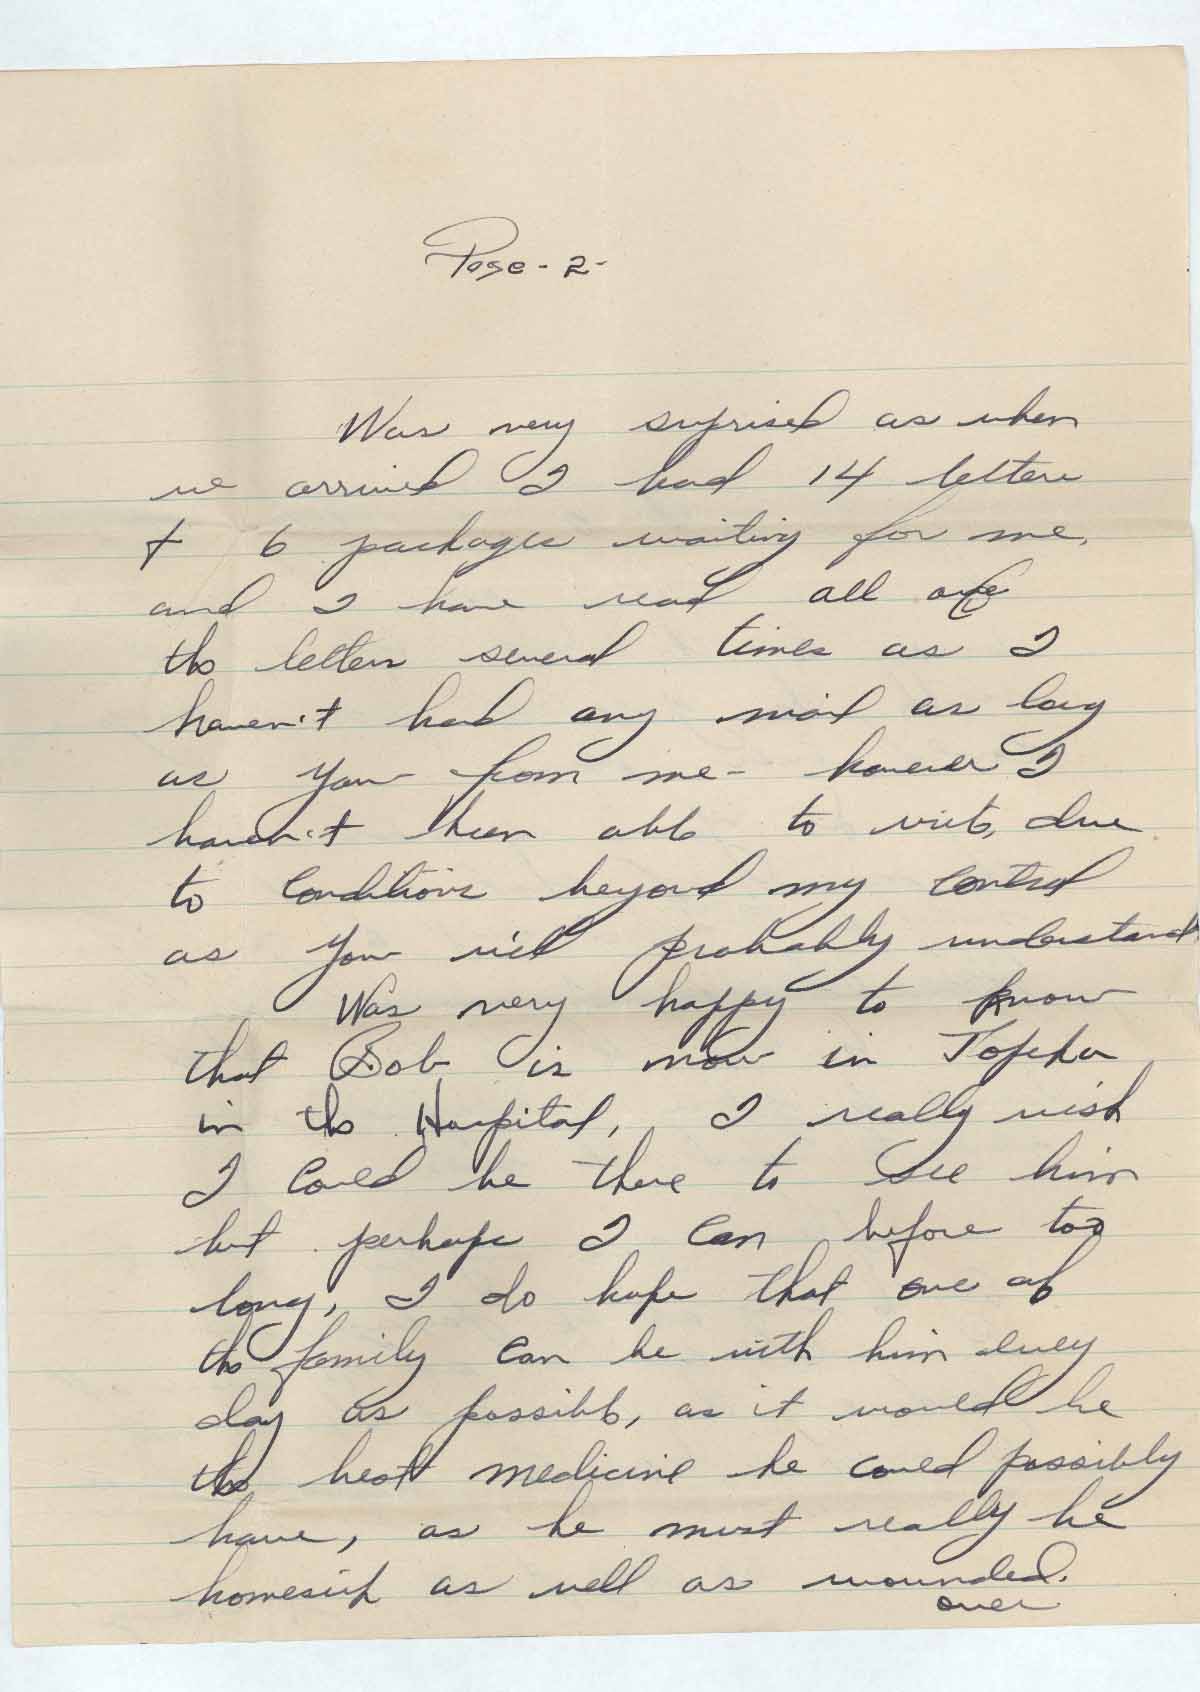 Page - 2 -
Was very suprised as when
we arrived I had 14 letters
+ 6 packages waiting for me,
and I have read all of
the letters several times as I
haven't had any mail as long
as you from me - however I
haven't been able to write, due
to conditions beyond my control
as you will probably understand.
Was very happy to know
that Bob is now in Topeka
in the Hospital, I really wish
I could be there to see him
but perhaps I can before too
long, I do hope that one of
the family can be with him every
day as possible, as it would be
the best medicine he could possibly
have, as he must really be
homesick as well as wounded.
over